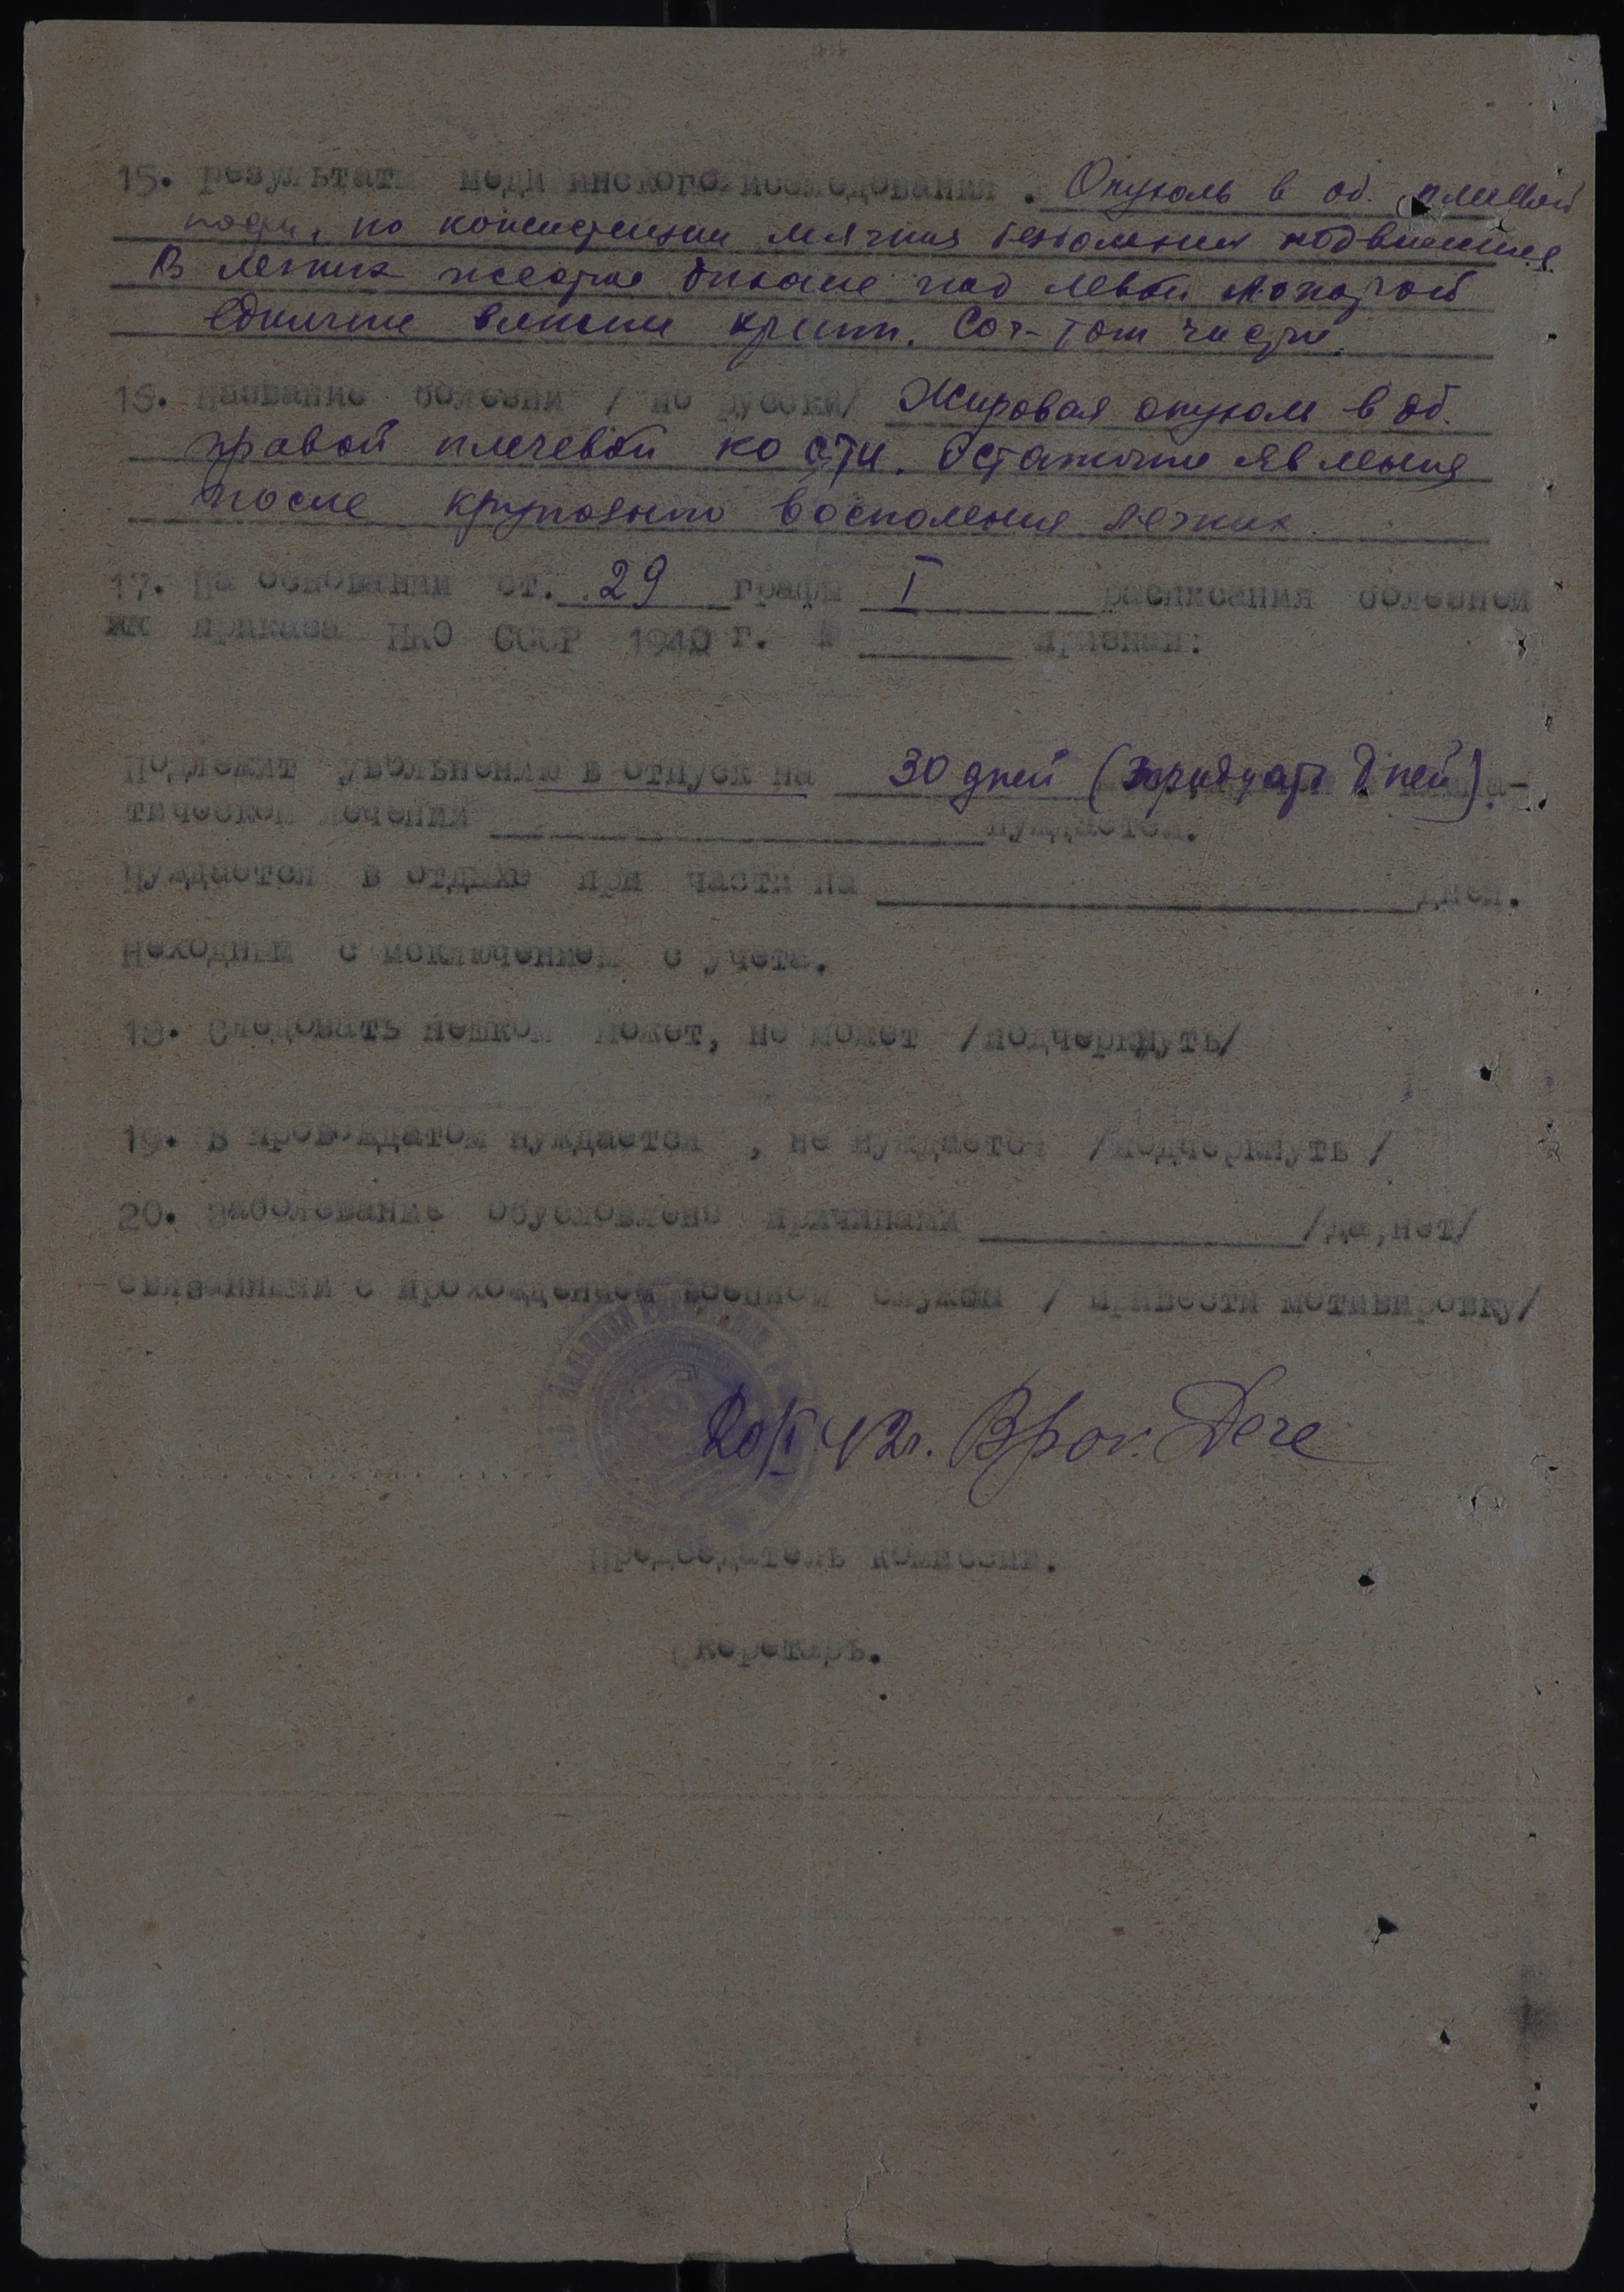 15. Результаты медицинского исследования. Опухоль в об. плечевой
кости, по консистенции мягкая безболезнен подвижная.
В легких жесткое дыхание под левой лопаткой
единичные влажные хрипы. Тоны чисты.
16. Название болезни / по русски/ Жировая опухоль в об.
правой плечевой кости. Остаточные явления
после крупозного воспаления легких
17. На основании ст. 29 графы I расписания болезней
приказа НКО СССР 1940 г. № признан:
Подлежит увольнению в отпуск на 30 дней (тридцать дней).
тическом лечении нуждается.
Нуждается в отдыхе при части на дней.
Негодным с исключением с учета.
18. Следовать пешком может, не может /подчеркнуть/
19. В провождатом нуждается , не нуждается /подчеркнуть /
20. Заболевание обусловлено причинами /да,нет/
связанными с прохождением военной службы / привести мотивировку/
20/I 42г.
Председатель комиссии.
Секретарь.